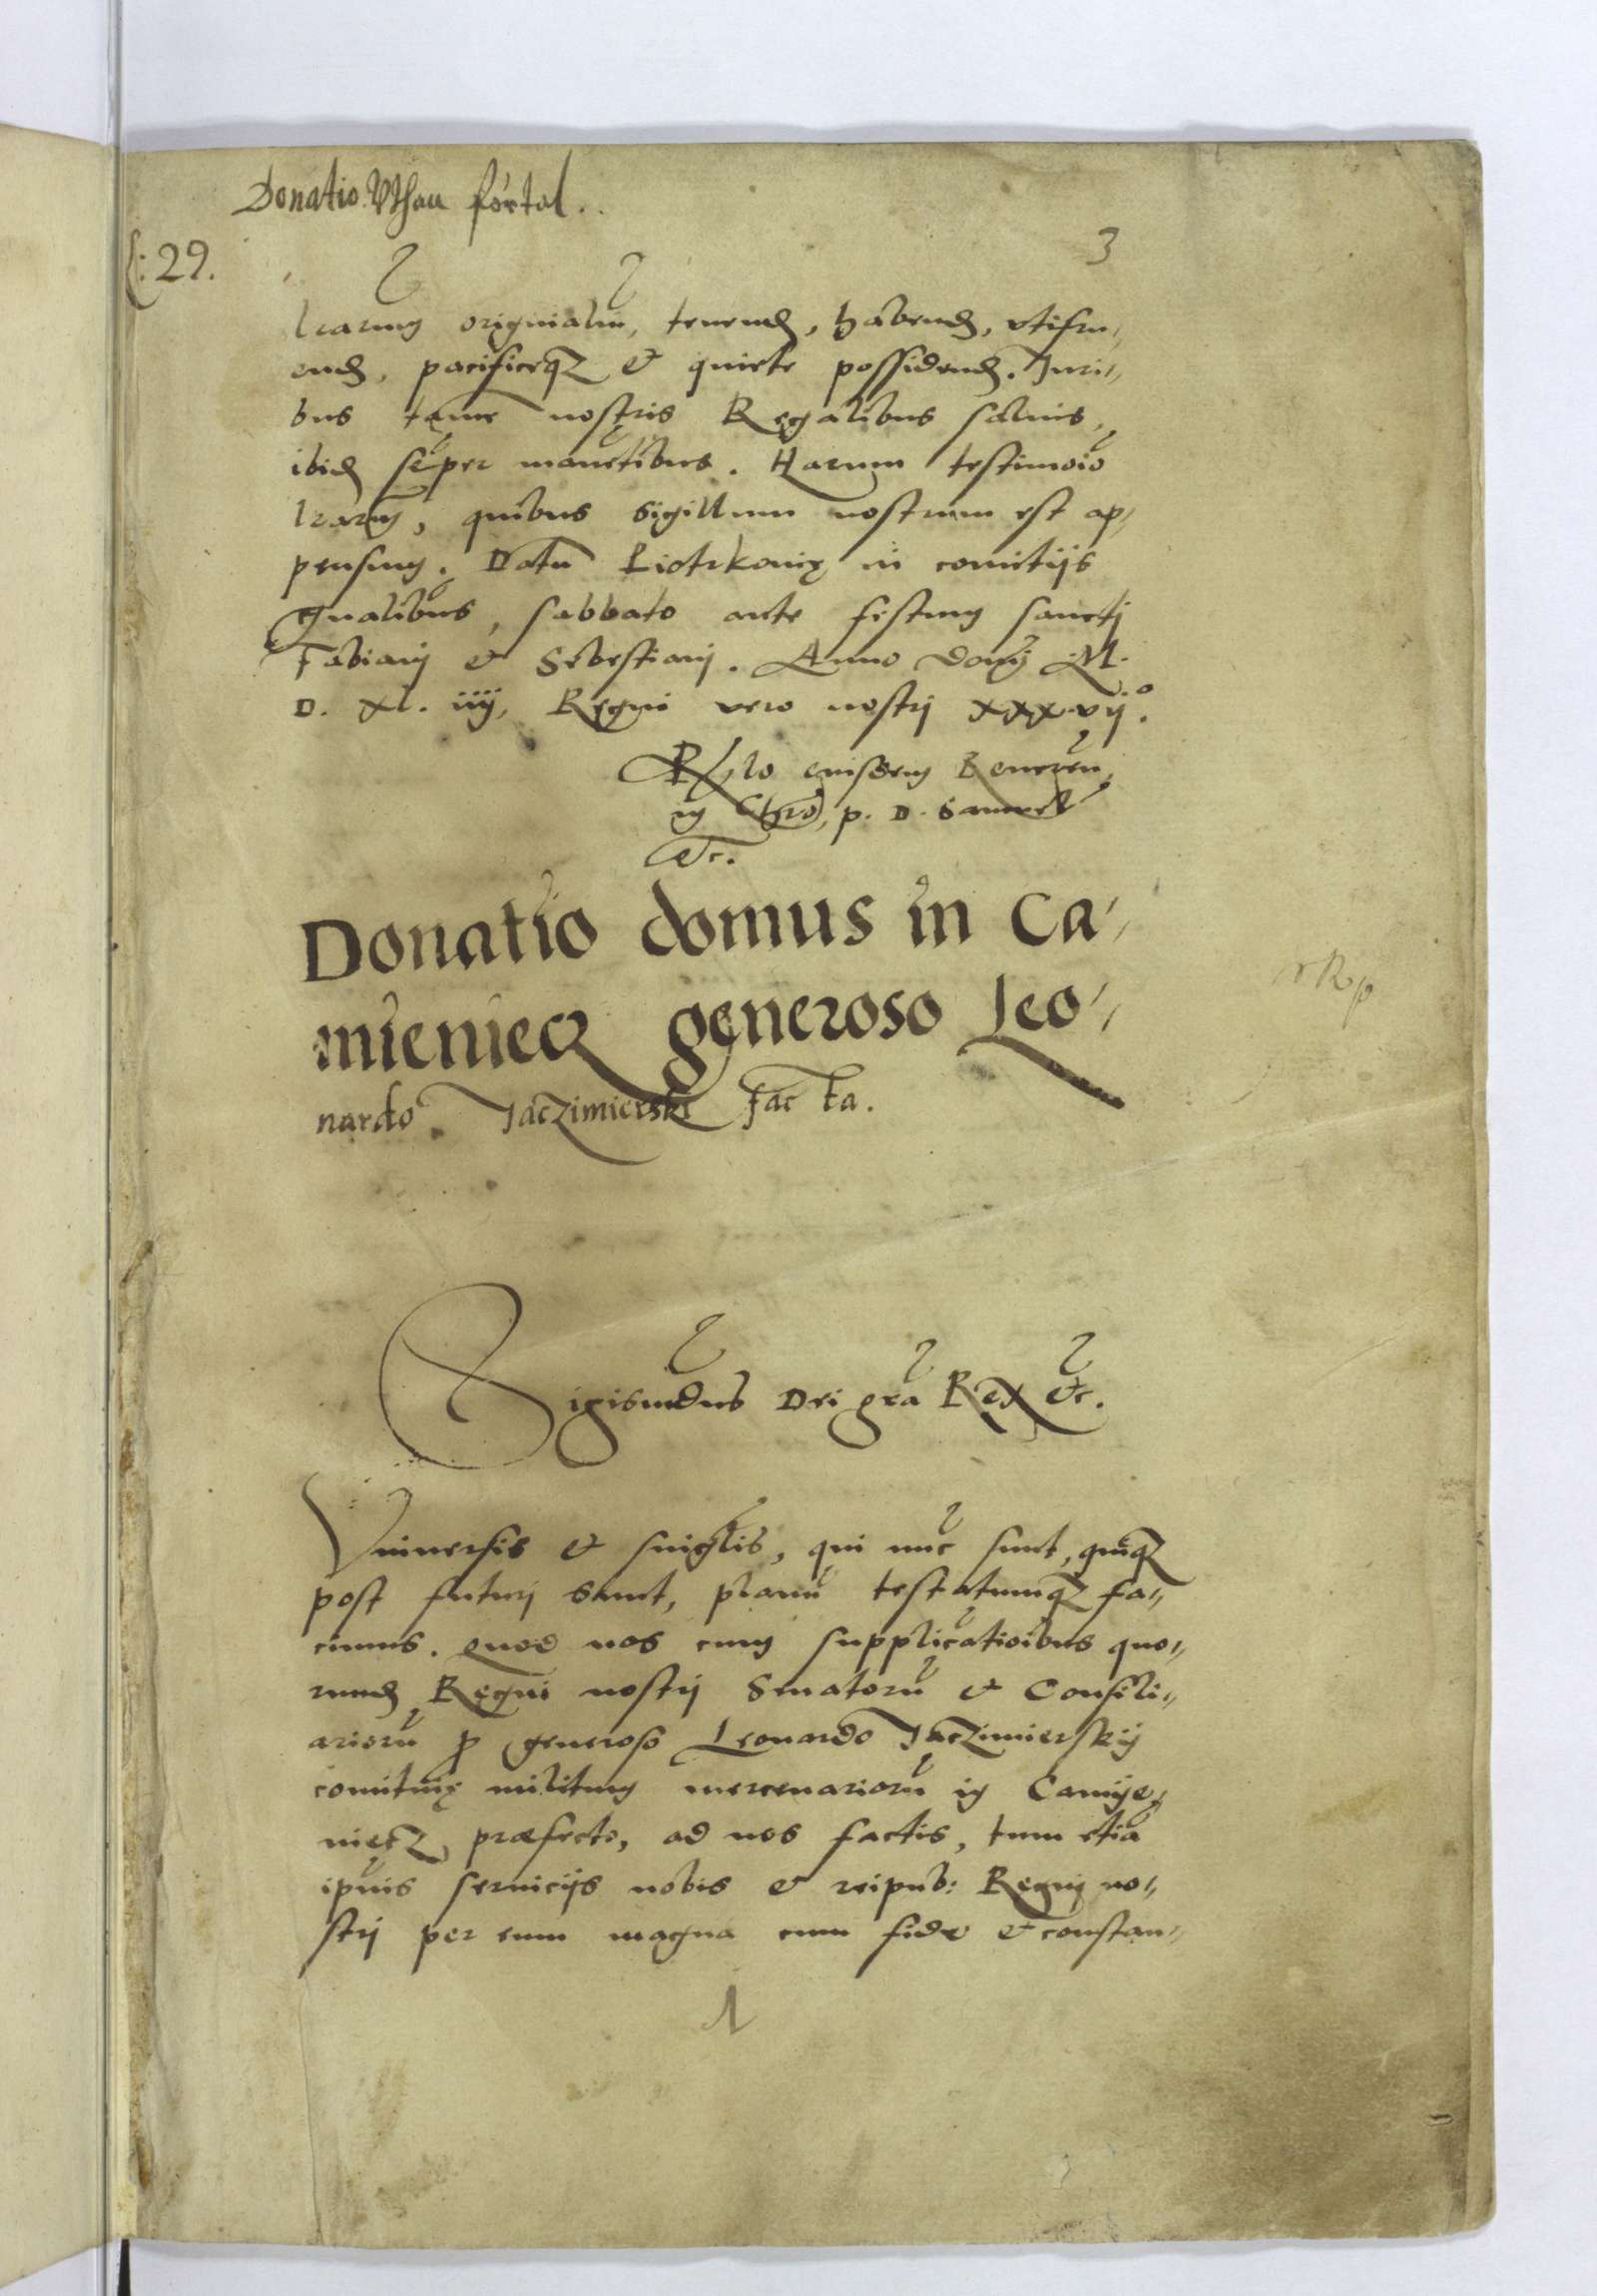 Donatio
C: 29.
3
lrarum originaliu, tenend, habend, vtifru,,
end, pacificeqz & quiete possidend. Juri,,
bus tame nostris Regalibus saluis,
ibid seper manetibus. Harum testimoio
lrarum, quibus sigillum nostrum est ap,,
pensum. Datu Piotrkouię in comitijs
gnalibus, sabbato ante festum sancti
Fabiani & Sebestiani. Anno domi M.
D. XL. iiij, Regni vero nostri xxxvij°.
Rlo eiusdem Reueren,
in Chro, p. D. Samuel
etc.
Donatio domus in Ca,,
mieniecz generoso Leo,,
nardo Jaczimierski facta.
Sigismūdus Dei gra Rex etc.
Vniuersis & singlis, qui nuc sunt, quiqz
post futuri sunt, planu testatumqz fa,,
cimus. Quod nos cum supplicatioibus quo,,
rund Regni nostri Senatoru & Consili,,
arioru p generoso Leonardo Jaczimierskij
comituię militum mercenarioru in Camije,,
niecz præfecto, ad nos factis, tum etia
ipuis seruicijs nobis & reipub: Regni no,,
stri per eum magna cum fide & constan,,